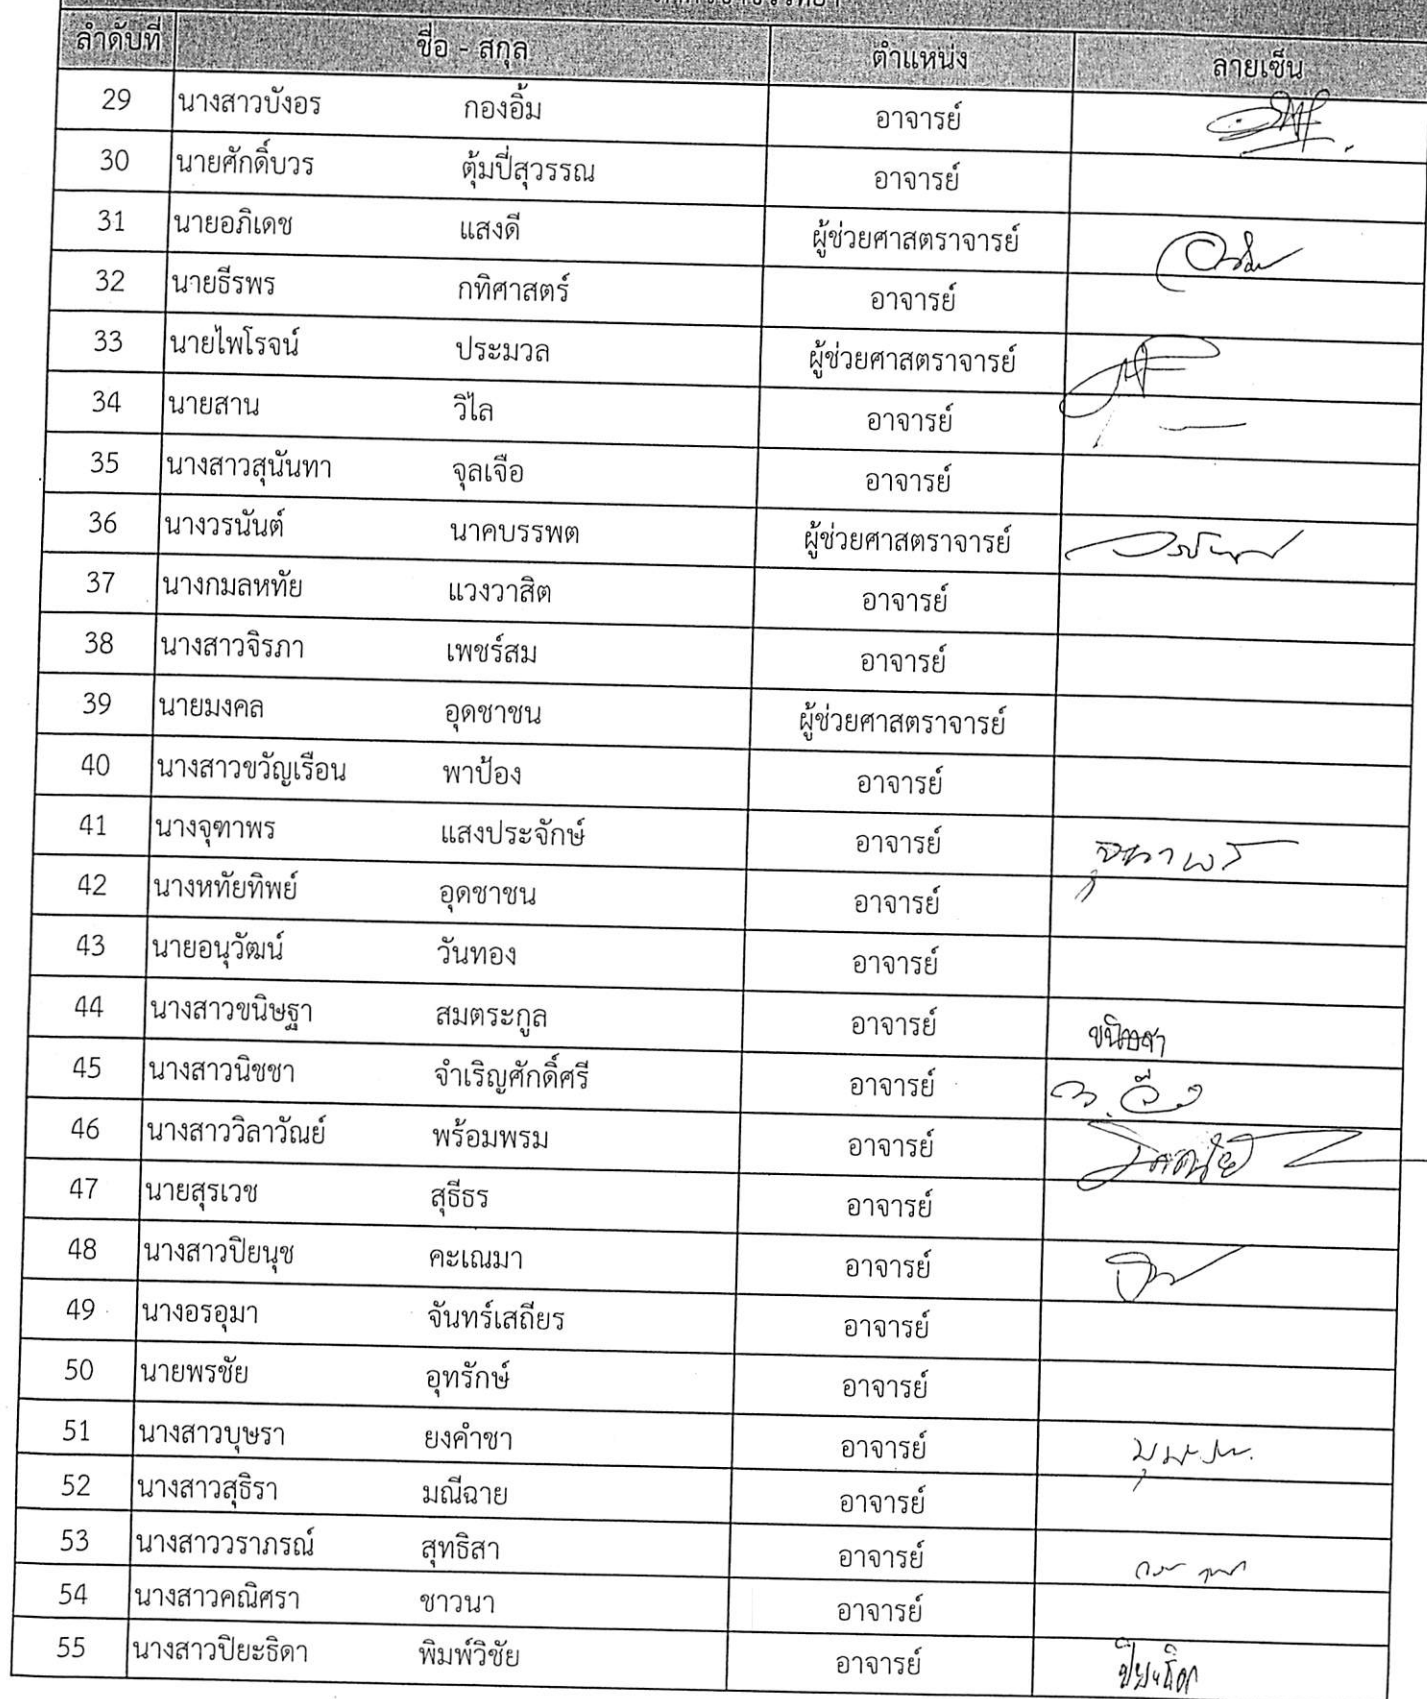 ลำดับที่ ชื่อ - สกุล ตำแหน่ง ลายเซ็น
29 นางสาวบังอร กองอิ้ม อาจารย์
30 นายศักดิ์บวร ตุ้มปี่สุวรรณ อาจารย์
31 นายอภิเดช แสงดี ผู้ช่วยศาสตราจารย์
32 นายธีรพร กทิศาสตร์ อาจารย์
33 นายไพโรจน์ ประมวล ผู้ช่วยศาสตราจารย์
34 นายสาน วิไล อาจารย์
35 นางสาวสุนันทา จุลเจือ อาจารย์
36 นางวรนันต์ นาคบรรพต ผู้ช่วยศาสตราจารย์
37 นางกมลหทัย แวงวาสิต อาจารย์
38 นางสาวจิรภา เพชร์สม อาจารย์
39 นายมงคล อุดชาชน ผู้ช่วยศาสตราจารย์
40 นางสาวขวัญเรือน พาป้อง อาจารย์
41 นางจุฑาพร แสงประจักษ์ อาจารย์ จุฑาพร
42 นางหทัยทิพย์ อุดชาชน อาจารย์
43 นายอนุวัฒน์ วันทอง อาจารย์
44 นางสาวขนิษฐา สมตระกูล อาจารย์
45 นางสาวนิชชา จำเริญศักดิ์ศรี อาจารย์
46 นางสาววิลาวัณย์ พร้อมพรม อาจารย์
47 นายสุรเวช สุธีธร อาจารย์
48 นางสาวปิยนุช คะเณมา อาจารย์
49 นางอรอุมา จันทร์เสถียร อาจารย์
50 นายพรชัย อุทรักษ์ อาจารย์
51 นางสาวบุษรา ยงคำชา อาจารย์
52 นางสาวสุธิรา มณีฉาย อาจารย์
53 นางสาววราภรณ์ สุทธิสา อาจารย์
54 นางสาวคณิศรา ชาวนา อาจารย์
55 นางสาวปิยะธิดา พิมพ์วิชัย อาจารย์